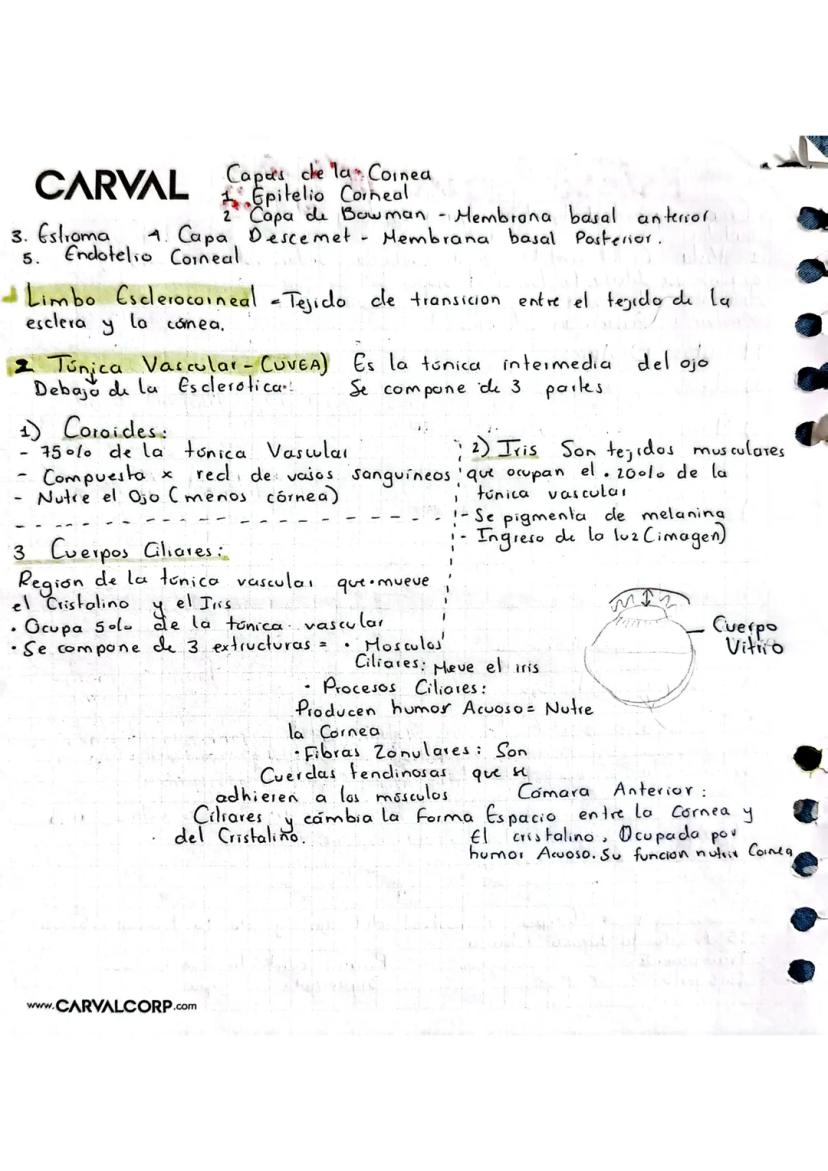 CARVAL
Capas de la Cornea
1. Epitelio Corneal
2 Capa de Bowman - Membrana basal anterior
3. Estroma 4. Capa Descemet - Membrana basal Posterior.
5. Endotelio Corneal
Limbo Esclerocorneal = Tejido de transicion entre el tejido de la
esclera y la córnea.
2 Túnica Vascular - (UVEA) Es la túnica intermedia del ojo
Debajo de la Esclerotica. Se compone de 3 partes
1) Coroides:
- 75% de la túnica Vascular
- Compuesta x red de vasos sanguíneos
- Nutre el Ojo (menos córnea)
2) Iris Son tejidos musculares
que ocupan el 20% de la
túnica vascular
- Se pigmenta de melanina
- Ingreso de la luz (imagen)
3 Cuerpos Ciliares:
Región de la túnica vascular que mueve
el Cristalino y el Iris
• Ocupa 5% de la túnica vascular
• Se compone de 3 extructuras = • Mosculos
Ciliares: Meve el iris
• Procesos Ciliares:
Producen humor Acuoso = Nutre
la Cornea
• Fibras Zonulares: Son
Cuerdas tendinosas que se
adhieren a los músculos
Ciliares y cámbia la Forma
del Cristalino.
Cuerpo
Vitrio
Cámara Anterior:
Espacio entre la Cornea y
El cristalino, Ocupado por
humor Acuoso. Su funcion nutrir Cornea
www.CARVALCORP.com